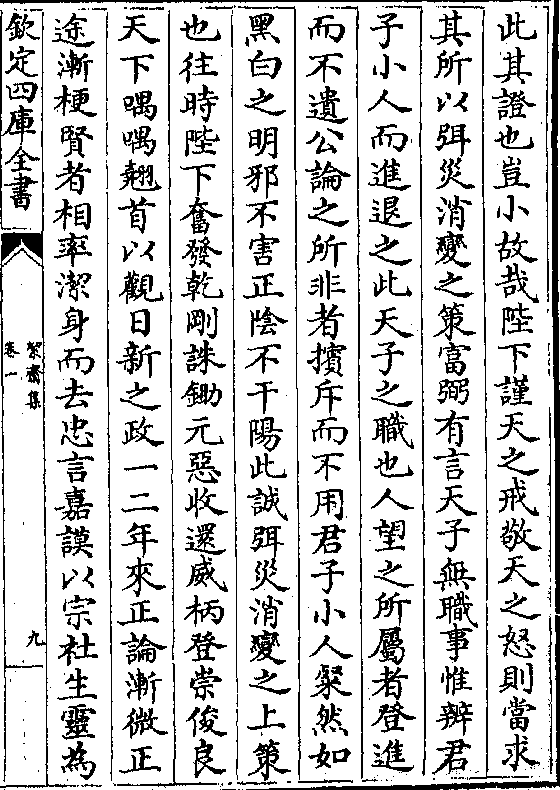 此其證也豈小故哉陛下謹天之戒敬天之怒則當求
其所以弭災消變之策富弼有言天子無職事惟辨君
子小人而進退之此天子之職也人望之所屬者登進
而不遺公論之所非者擯斥而不用君子小人粲然如
黑白之明邪不害正陰不干陽此誠弭災消變之上策
也往時陛下奮發乾剛誅鋤元惡收還威柄登崇俊良
天下喁喁翹首以觀日新之政一二年來正論漸微正
途漸梗賢者相率潔身而去忠言嘉謨以宗社生靈為
欽定四庫全書
絜齋集
卷一
九